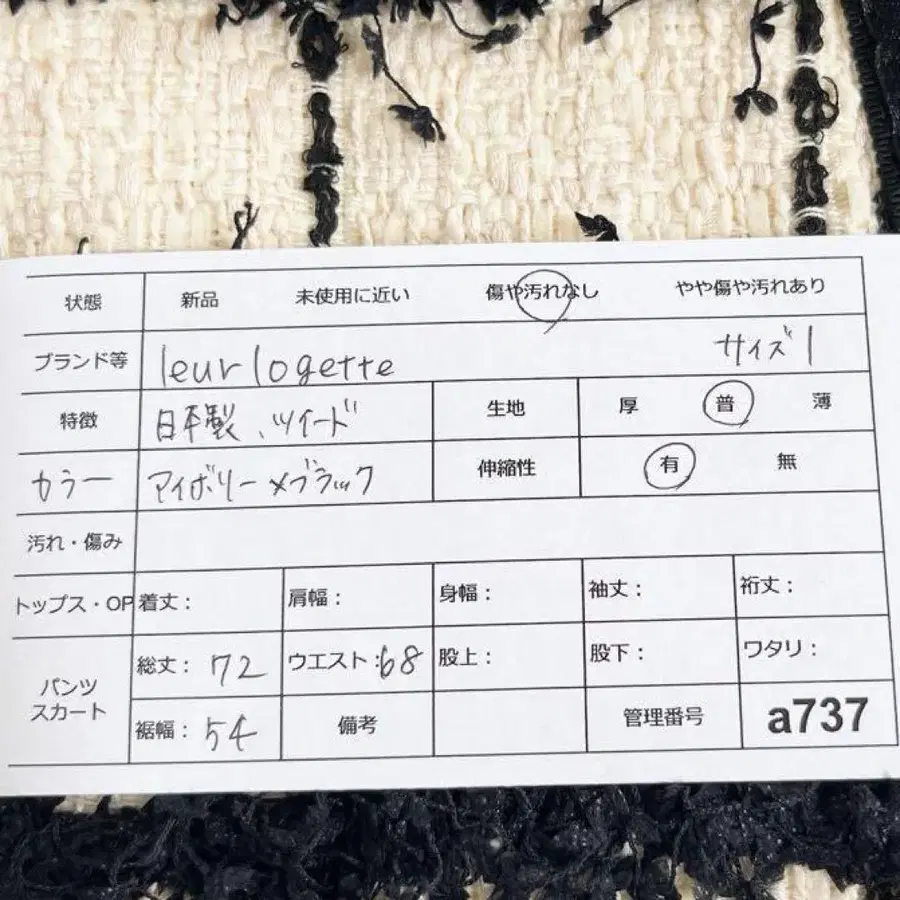 状態 新品 未使用に近い 傷や汚れなし やや傷や汚れあり
ブランド等 leur logette サイズ 1
特徴 日本製、ツイード 生地 厚 普 薄
カラー アイボリー×ブラック 伸縮性 有 無
汚れ・傷み
トップス・OP 着丈： 肩幅： 身幅： 袖丈： 裄丈：
パンツ スカート 総丈：72 ウエスト：68 股上： 股下： ワタリ：
裾幅：54 備考 管理番号 a737